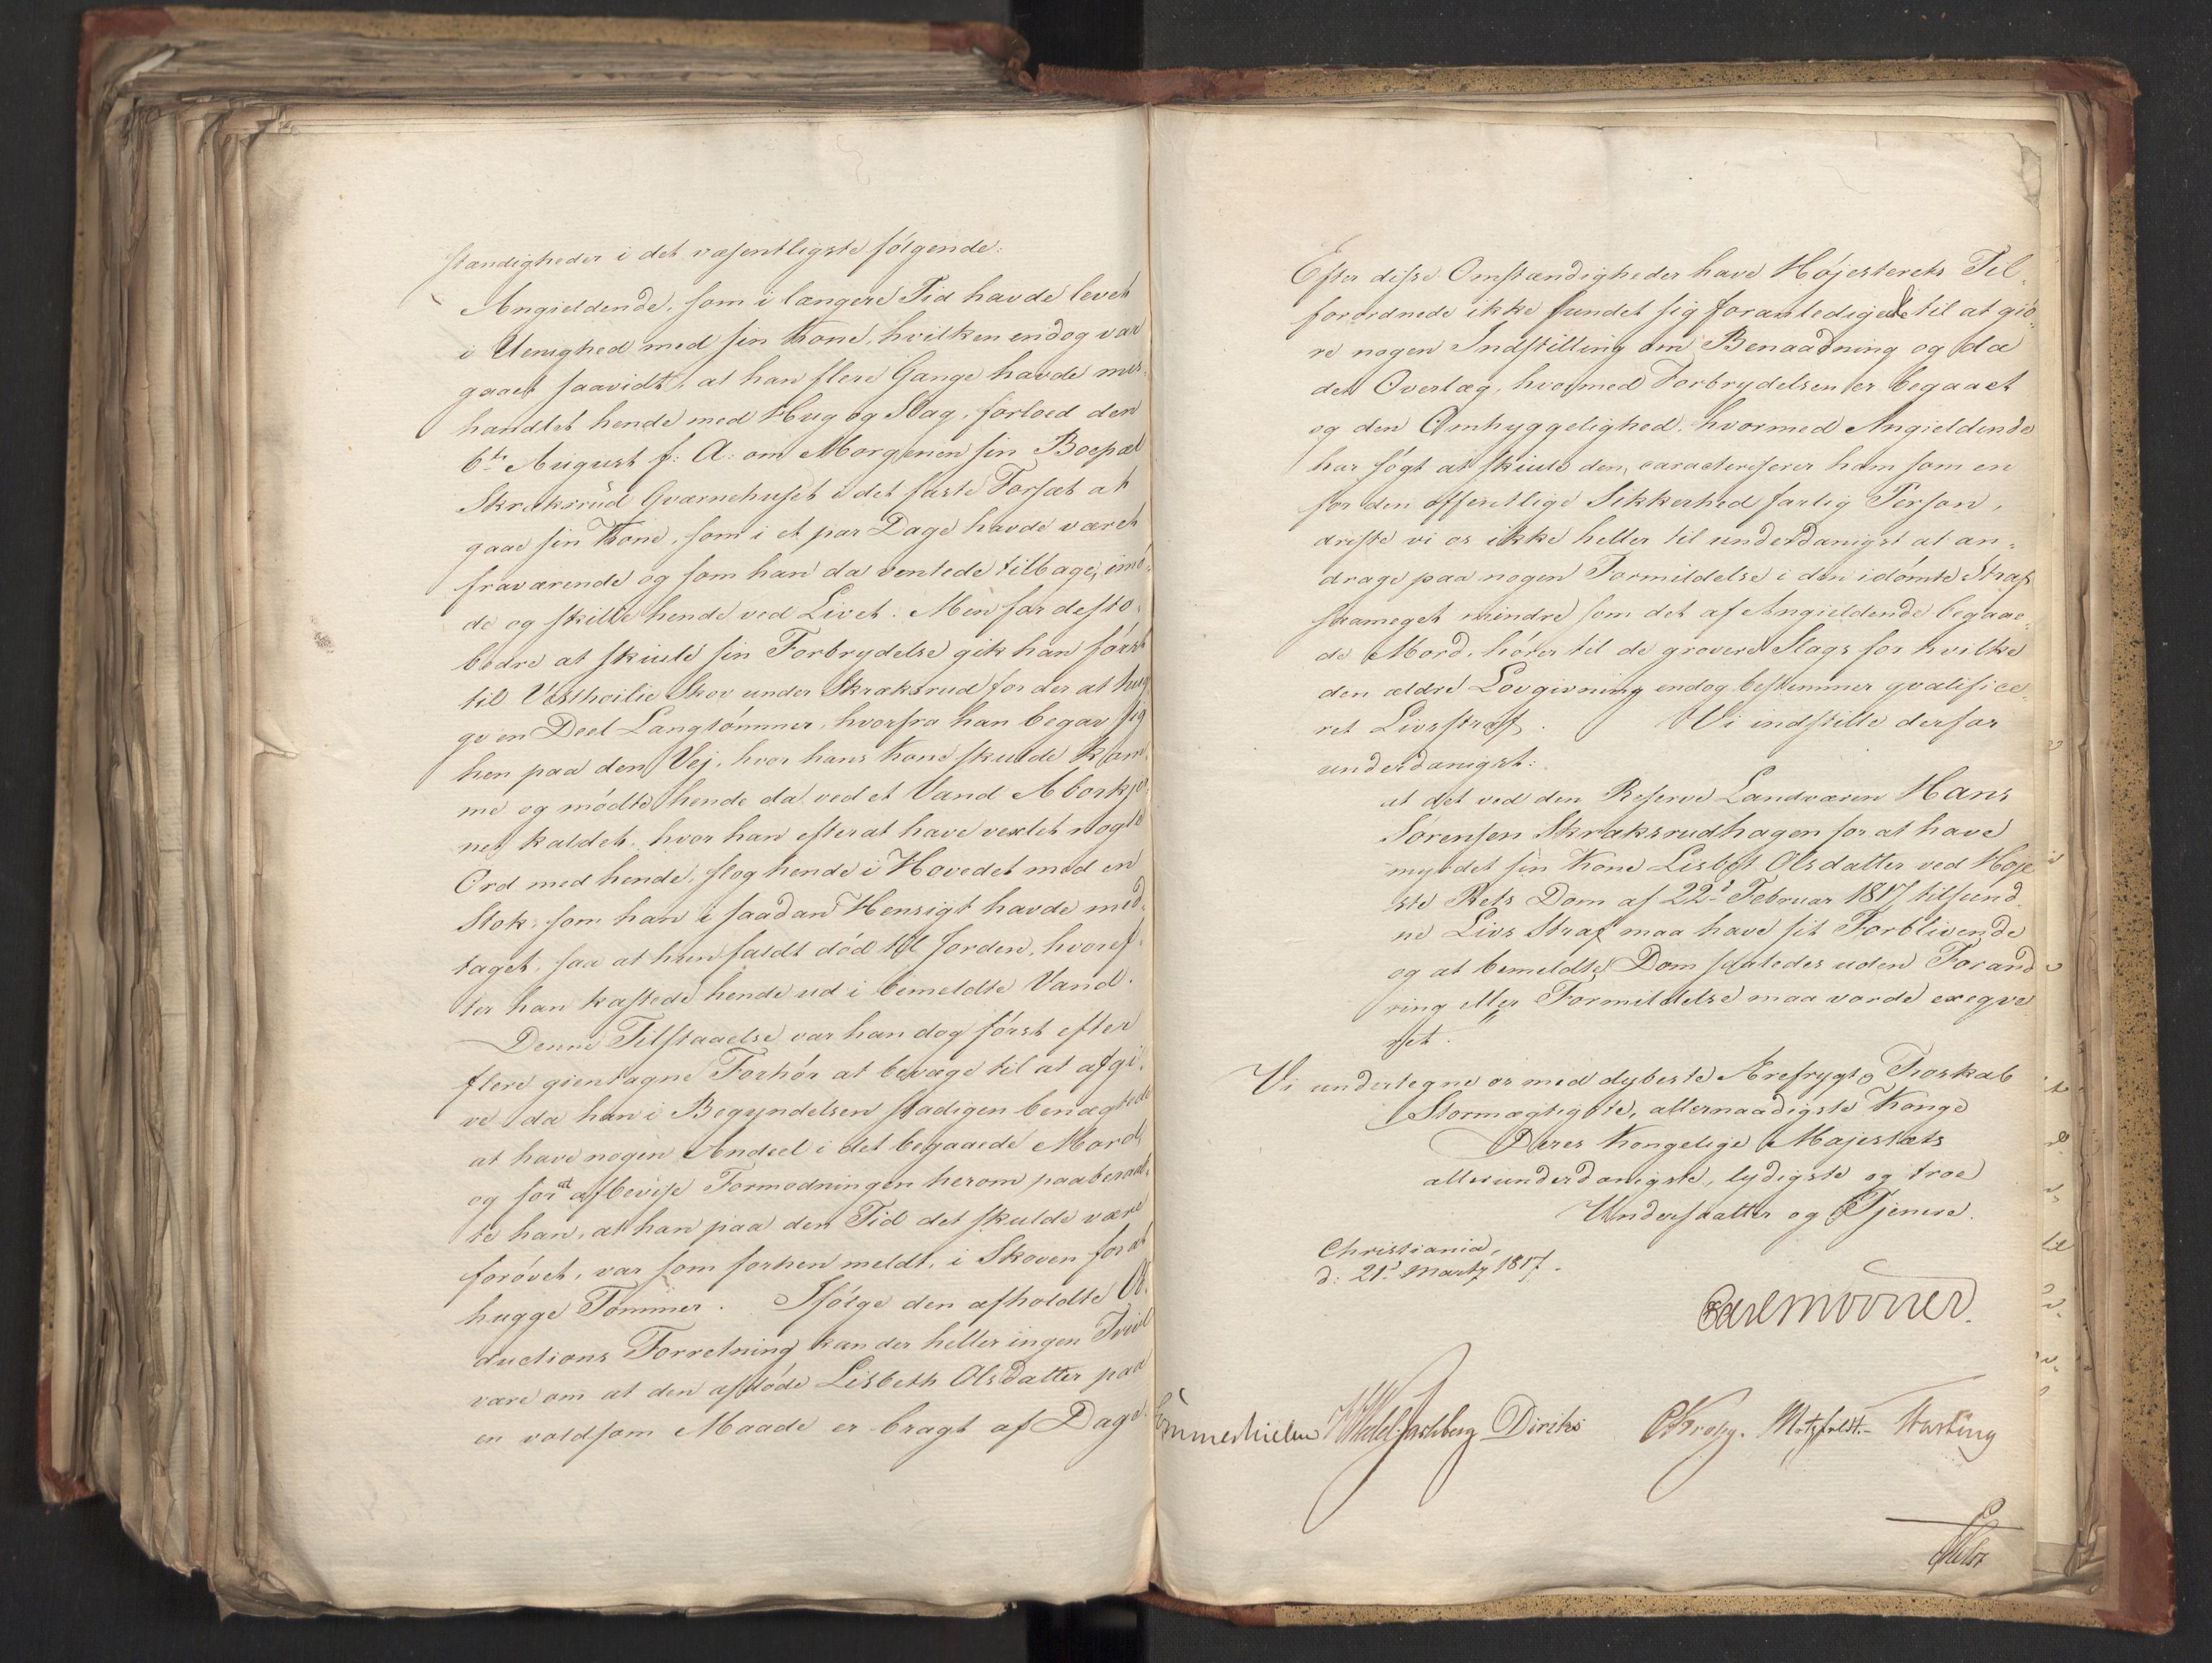 standigheder i det væsentligste følgende:
Angieldende, som i længere Tid havde levet
i Uenighed med sin Kone, hvilken endog var
gaaet saavidt, at han flere Gange havde mis-
handlet hende med Hug og Slag, forloed den
6te August f: A: om Morgenen sin Boepæl
Skraksrud Qværnehuset i det faste Forsæt at
gaae sin Kone, som i et par Dage havde været
fraværende og som han da ventede tilbage, imø-
de og skille hende ved Livet. Men for desto-
bedre at skiule sin Forbrydelse gik han først
til Vestheilie Skov under Skraksrud for der at hug
ge en Deel Langtømmer, hvorfra han begav sig
hen paa den Vej, hvor hans Kone skulde kom-
me og mødte hende da ved et Vand Aborkjer-
net kaldet, hvor han efterat have vexlet nogle
Ord med hende, slog hende i Hovedet med en
Stok, som han i saadan Hensigt havde med-
taget, saa at hun faldt død til Jorden, hvoref-
ter han kastede hende ud i bemeldte Vand.
Denne Tilstaaelse var han dog først efter
flere gientagne Forhør at bevæge til at afgi-
ve da han i Begyndelsen stadigen benægtede
at have nogen Andeel i det begaaede Mord
og for at afbevise Formodningen herom paaberaab-
te han, at han paa den Tid det skulde være
forøvet, var som forhen meldt, i Skoven for at
hugge Tømmer. Ifølge den afholdte Ob-
ductions Forretning kan der heller ingen Tvivl
være om at den afdøde Lisbeth Olsdatter paa
en voldsom Maade er bragt af Dage.
Efter disse Omstændigheder have Højesterets Til-
forordnede ikke fundet sig foranlediget til at giø-
re nogen Indstilling om Benaadning og da
det Overlæg, hvormed Forbrydelsen er begaaet
og den Omhyggelighed, hvormed Angieldende
har søgt at skiule den, caracteriserer ham som en
for den offentlige Sikkerhed farlig Person,
driste vi os ikke heller til underdanigst at an-
drage paa nogen Formildelse i den idømte Straf
saameget mindre som det af Angieldende begaae-
de Mord, hører til de grovere Slags for hvilke
den ældre Lovgivning endog bestemmer qvalifice-
ret Livsstraf. Vi indstille derfor
underdanigst:
at det ved den Reserve Landværn Hans
Sørensen Skraksrudhagen for at have
myrdet sin Kone Lisbet Olsdatter ved Høje
ste Rets Dom af 22d Februar 1817 tilfund-
ne Livs Straf maa have sit Forblivende
og at bemeldte Dom saaledes uden Forand
ring eller Formildelse maa vorde exeqve
ret."
Vi undertegne os med dybeste Ærefrygt og Troskab
Stormægtigste, allernaadigste Konge
Deres Kongelige Majestæts
allerunderdanigste, lydigste og troe
Undersaatter og Tjenere.
Christiania,
d: 21d Martz 1817.
Carl Mörner.
Sommerhielm HWedel Jarlsberg Diriks CKrohg. Motzfeldt. Hasting